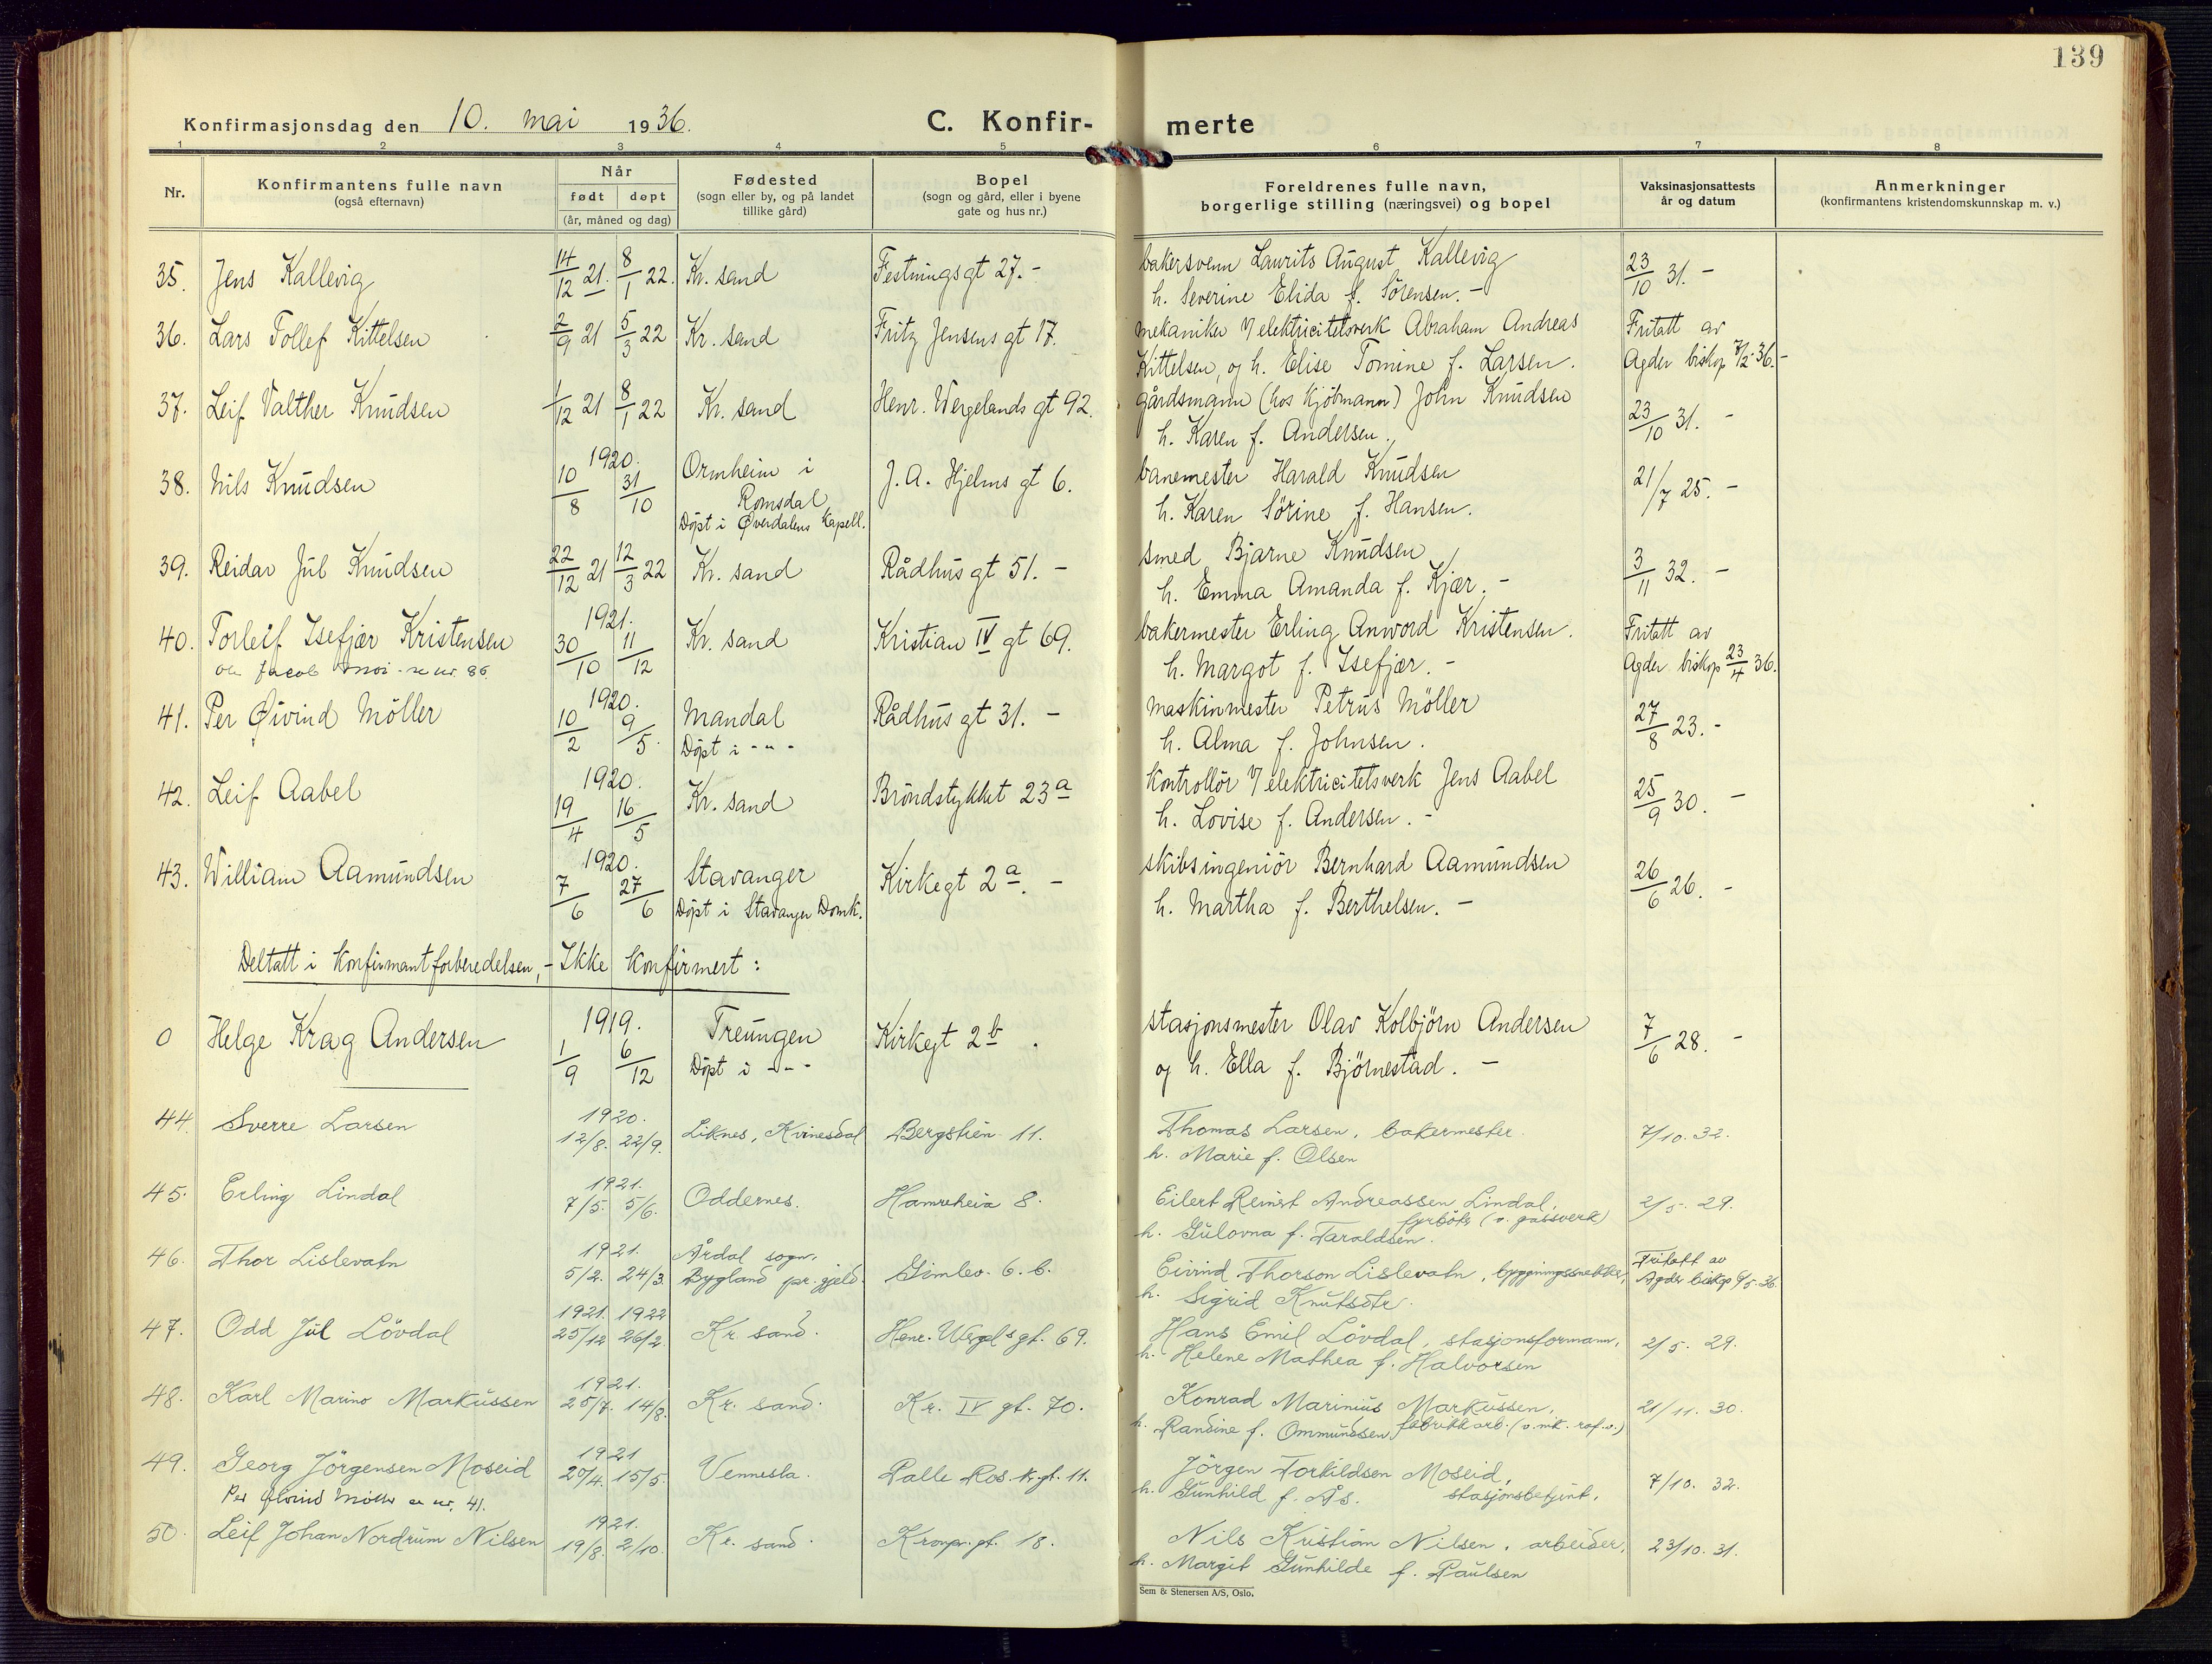 139
Konfirmasjonsdag den 10. mai 1936.
C. Konfir-merte
1 2 3 4 5 6 7 8
Nr.
Konfirmantens fulle navn
(også efternavn)
Når
født døpt
(år, måned og dag)
Fødested
(sogn eller by, og på landet
tillike gård)
Bopel
(sogn og gård, eller i byene
gate og hus nr.)
Foreldrenes fulle navn,
borgerlige stilling (næringsvei) og bopel
Vaksinasjonsattests
år og datum
Anmerkninger
(konfirmantens kristendomskunnskap m. v.)
35. Jens Kallevig 14/12 21. 8/1 22. Kr. sand Festningsgt 27. - bakersvenn Laurits August Kallevig 23/10 31. -
h. Severine Elida f. Sörensen. -
36. Lars Tollef Kittelsen 2/9 21 5/3 22 Kr. sand Fritz Jensens gt 17. mekaniker v/ elektricitetsverk Abraham Andreas Fritatt av
Kittelsen, og h. Elise Tomine f. Larsen. Agder biskop 7/2 36. -
37. Leif Valther Knudsen 1/12 21 8/1 22 Kr. sand Henr. Wergelands gt 92. gårdsmann (hos kjöbmann) John Knudsen 23/10 31. -
h. Karen f. Andersen.
38. Nils Knudsen 1920. 10/8 31/10 Ormheim i J. A. Hjelms gt 6. banemester Harald Knudsen 21/7 25. -
Romsdal h. Karen Sörine f. Hansen.
Döpt i Øverdalens Kapell.
39. Reidar Jul Knudsen 22/12 21 12/3 22 Kr. sand Rådhusgt 51. - smed Bjarne Knudsen 3/11 32. -
h. Emma Amanda f. Kjær. -
40. Torleif Isefjær Kristensen 1921. 30/10 11/12 Kr. sand Kristian IV gt 69. bakermester Erling Anword Kristensen. Fritatt av
Ole Jacob Moi - se nr. 86 h. Margot f. Isefjær. - Agder biskop 23/4 36.
41. Per Øivind Möller 1920. 10/2 9/5. Mandal Rådhusgt 31. - maskinmester Petrus Möller 27/8 23. -
Döpt i - " - h. Alma f. Johnsen.
42. Leif Aabel 1920. 19/4 16/5 Kr. sand Bröndstykket 23a kontrollör v/ elektricitetsverk Jens Aabel 25/9 30. -
h. Lovise f. Andersen. -
43. William Aamundsen 1920. 7/6 27/6 Stavanger Kirkegt 2a. - skibsingeniör Bernhard Aamundsen 26/6 26. -
Döpt i Stavanger Domk. h. Martha f. Berthelsen. -
Deltatt i konfirmantforberedelsen, - Ikke konfirmert:
0 Helge Krag Andersen 1919. 1/9 6/12 Treungen Kirkegt 2b. stasjonsmester Olav Kolbjörn Andersen 7/6 28. -
Döpt i - " - og h. Ella f. Björnestad. -
44. Sverre Larsen 1920. 12/8. 22/9. Liknes, Kvinesdal Bergstien 11. Thomas Larsen, bakermester. 7/10. 32.
h. Marie f. Olsen
45. Erling Lindal 1921. 7/5. 5/6. Oddernes. Hamreheia 8. Eilert Reinert Andreassen Lindal, 2/5. 29.
fyrböter (v. gassverk)
h. Gulovna f. Taraldsen.
46. Thor Lislevatn 1921. 5/2. 24/3. Årdal sogn, Gimlev. 6. b. Eivind Thorson Lislevatn, bygningssnekker, Fritatt av
Bygland pr. gjeld. h. Sigrid Knutsdtr. Agder biskop 9/5-36.
47. Odd Jul Lövdal 1921. 1922 25/12 26/2. Kr. sand. Henr. Wergel.s gt. 69. Hans Emil Lövdal, stasjonsformann, 2/5. 29.
h. Helene Mathea f. Halvorsen
48. Karl Marino Markussen 1921. 25/7. 14/8. Kr. sand. Kr. IV gt. 70. Konrad Marinius Markussen, 21/11. 30.
h. Randine f. Ommundsen, fabrikkarb. (v. nik. raf. v.)
49. Georg Jörgensen Moseid 1921 20/4. 15/5. Vennesla. Palle Ros. kr. gt. 11. Jörgen Torkildsen Moseid, 7/10. 32.
Per Øivind Möller se nr. 41. h. Gunhild f. Ås. stasjonsbetjent.
50. Leif Johan Nordrum Nilsen 1921. 19/8. 2/10. Kr. sand. Kronpr. gt. 18. Nils Kristian Nilsen, arbeider, 23/10. 31.
h. Margit Gunhilde f. Paulsen
Sem & Stenersen A/S, Oslo.